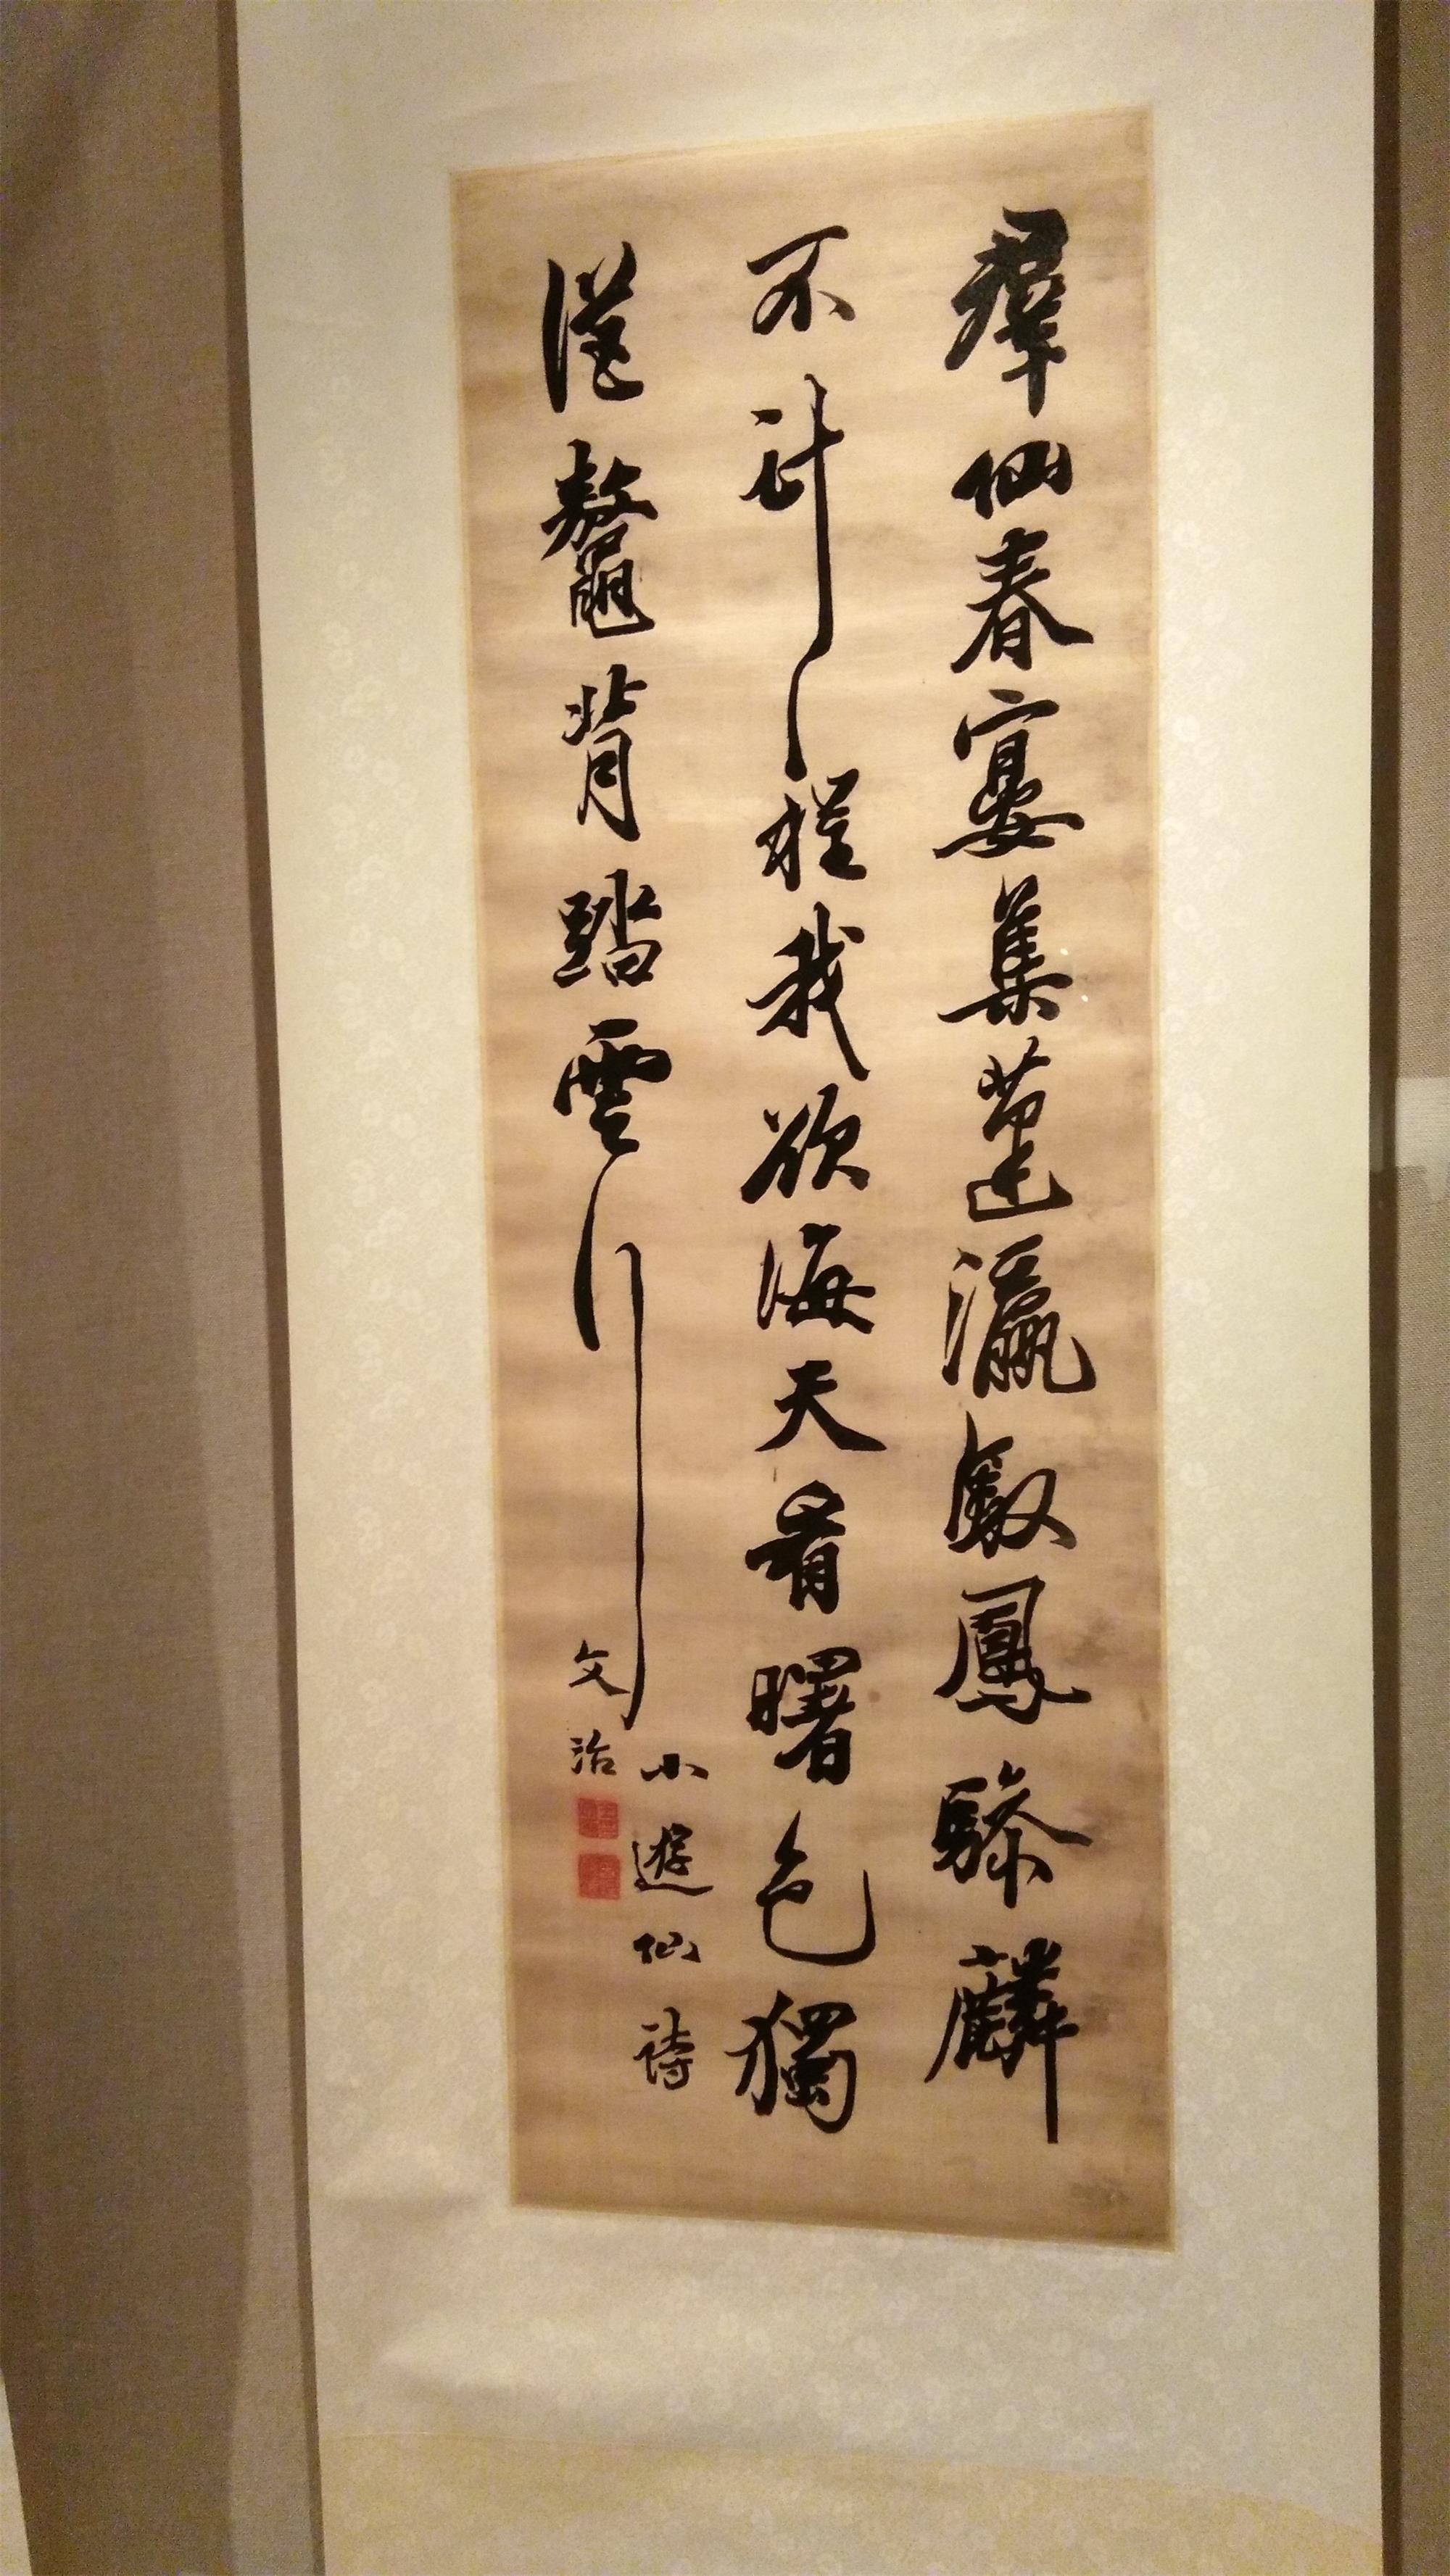 羣仙春宴集蓬瀛馭鳳驂麟
不計程我欲海天看曙色獨
從鼇背踏雲行
小遊仙詩
文治